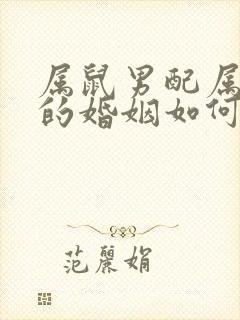 属鼠男配属
的婚姻如何
范麗娟